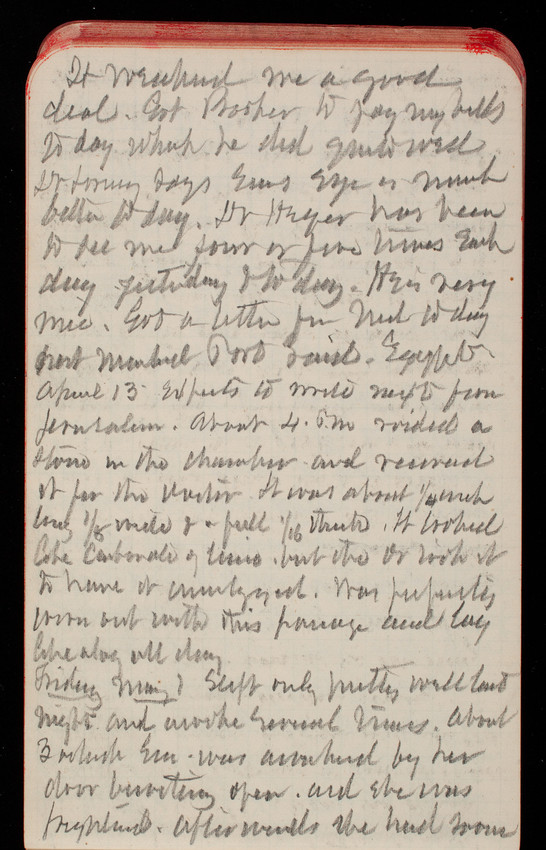 It weakened me a good
deal. Got Booker to pay my bills
to day which he did quite well
Dr Loring says Ems Eye is much
better to day. Dr Heger has been
to see me four or five times Each
day yesterday & to day. He is very
nice. Got a letter from Ned to day
post marked Port Said. Egypt
April 13 Expects to write next from
Jerusalem. About 4. P.m voided a
stone in the chamber and reserved
it for the doctor. It was about 1/4 inch
long 1/8 wide & a full 1/16 thick. It looked
like Carbonate of Lime. but the Dr took it
to have it analyzed. Was perfectly
worn out with this passage and lay
like a log all day
Friday May Slept only pretty well last
night and awoke several times. About
3 oclock Em. was awakened by her
door bursting open. and she was
frightened. Afterwards she had some